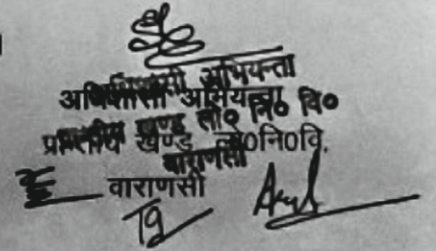 अधिशासी अभियन्ता
अधिशासी अभियन्ता
प्रान्तीय खण्ड लो० नि० वि०
प्रान्तीय खण्ड लो०नि०वि.
वाराणसी
वाराणसी